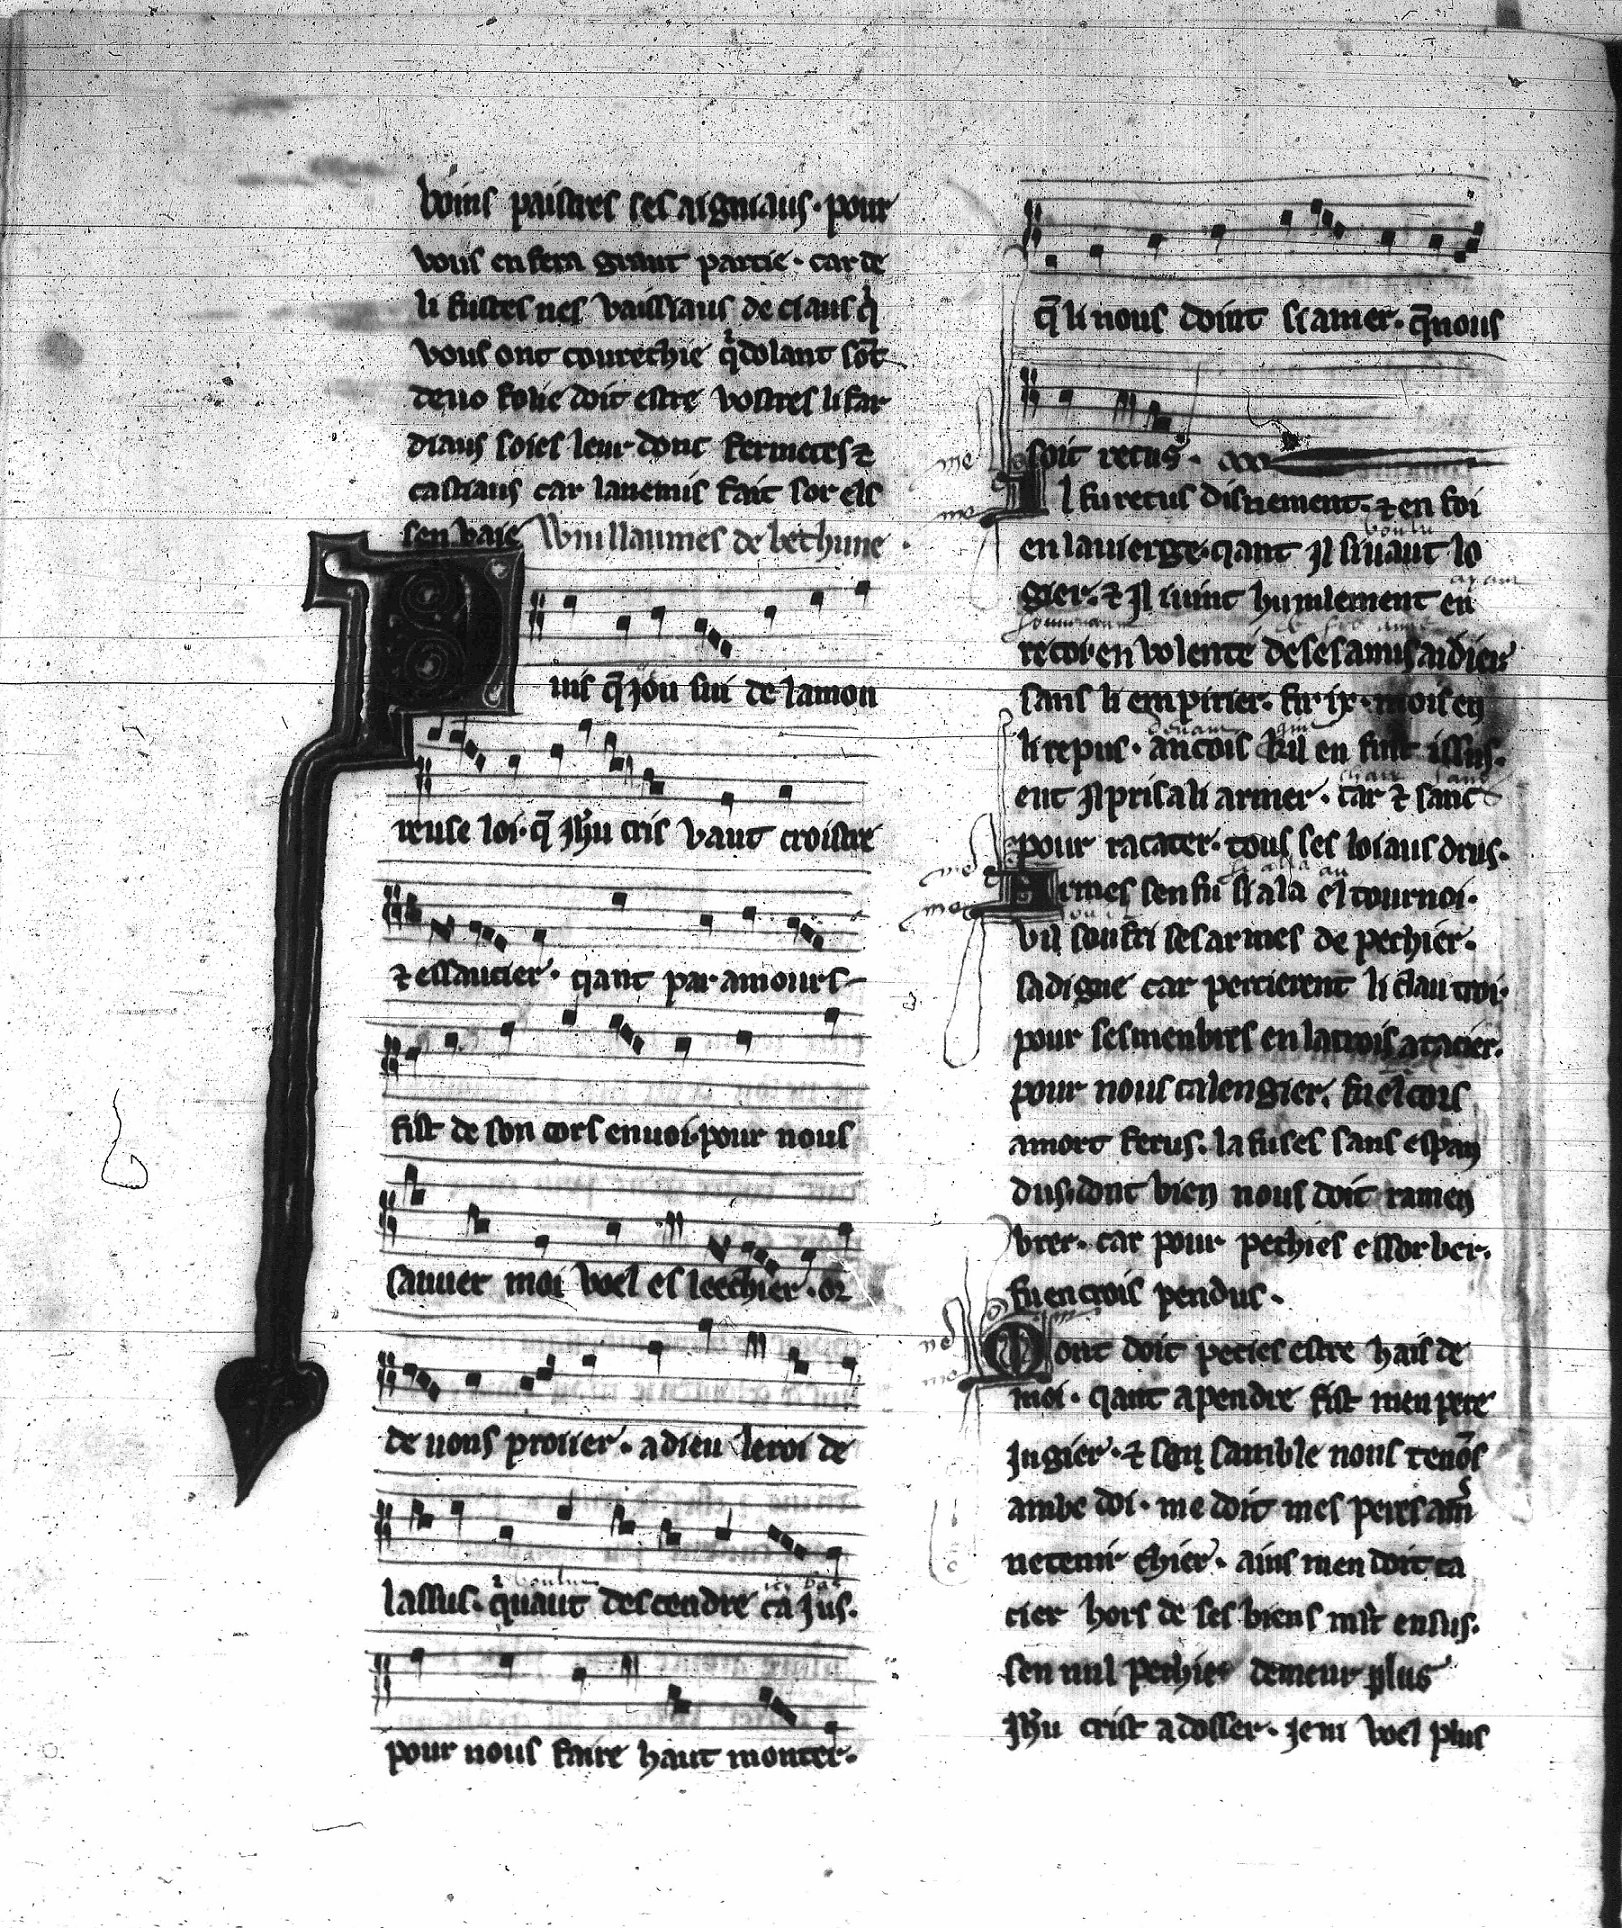 boins paistres ses aigniaus · pour
vous en fera grant partie · car de
li fustes nes vaissiaus de ciaus q̇
vous ont courechie q̇ dolant sōt
de uo folie doit estre vostres li far
diaus soies leur donc fermetes ⁊
castiaus car lanemis fait sor els
sen baie Willaumes de bethune ·
Puis q̄ jou sui de lamou
reuse loi · q̄ Jhū cris vaut croistre
⁊ essaucier · qant par amours
fist de son cors enuoi · pour nous
sauuer moi voel esleechier · or
de uous proiier · a dieu le roi de
lassus · quaut descendre ca jus ·
pour nous faire haut monter ·
q̄ li nous doint si amer · q̄ nous
soit recus ·
Il fu recus disnement · ⁊ en foi
en la uierge · qant Jl si uaut lo
gier · ⁊ Jl i uint humlement en
recoi · en volente de ses amis aidier
sans li empirier · fu · ix · mois en
li repus · ancois kil en fust issus ·
ent Jl pris a li armer · car ⁊ sanc
pour racater · tous ses loiaus drus ·
Armes sen fu si ala el tournoi ·
vil soufri ses armes de pechier ·
sa digne car percierent li clau troi ·
pour ses menbres en la crois atacier ·
pour nous calengier · fu el cors
a mort ferus · la fu ses sans espan
dus · dont bien nous doit ramen
brer · car pour pechies essorber ·
fu en crois pendus ·
Mont doit pecies estre hais de
moi · qant a pendre fist men pere
jugier · ⁊ sen samble nous tenōs
ambe doi · me doit mes peres am̄
ne tenir chier · ains men doit ca
cier hors de ses biens mr̄t ensus ·
sen nul pechiet demeur plus
Jhū crist adosser · je ni voel plus